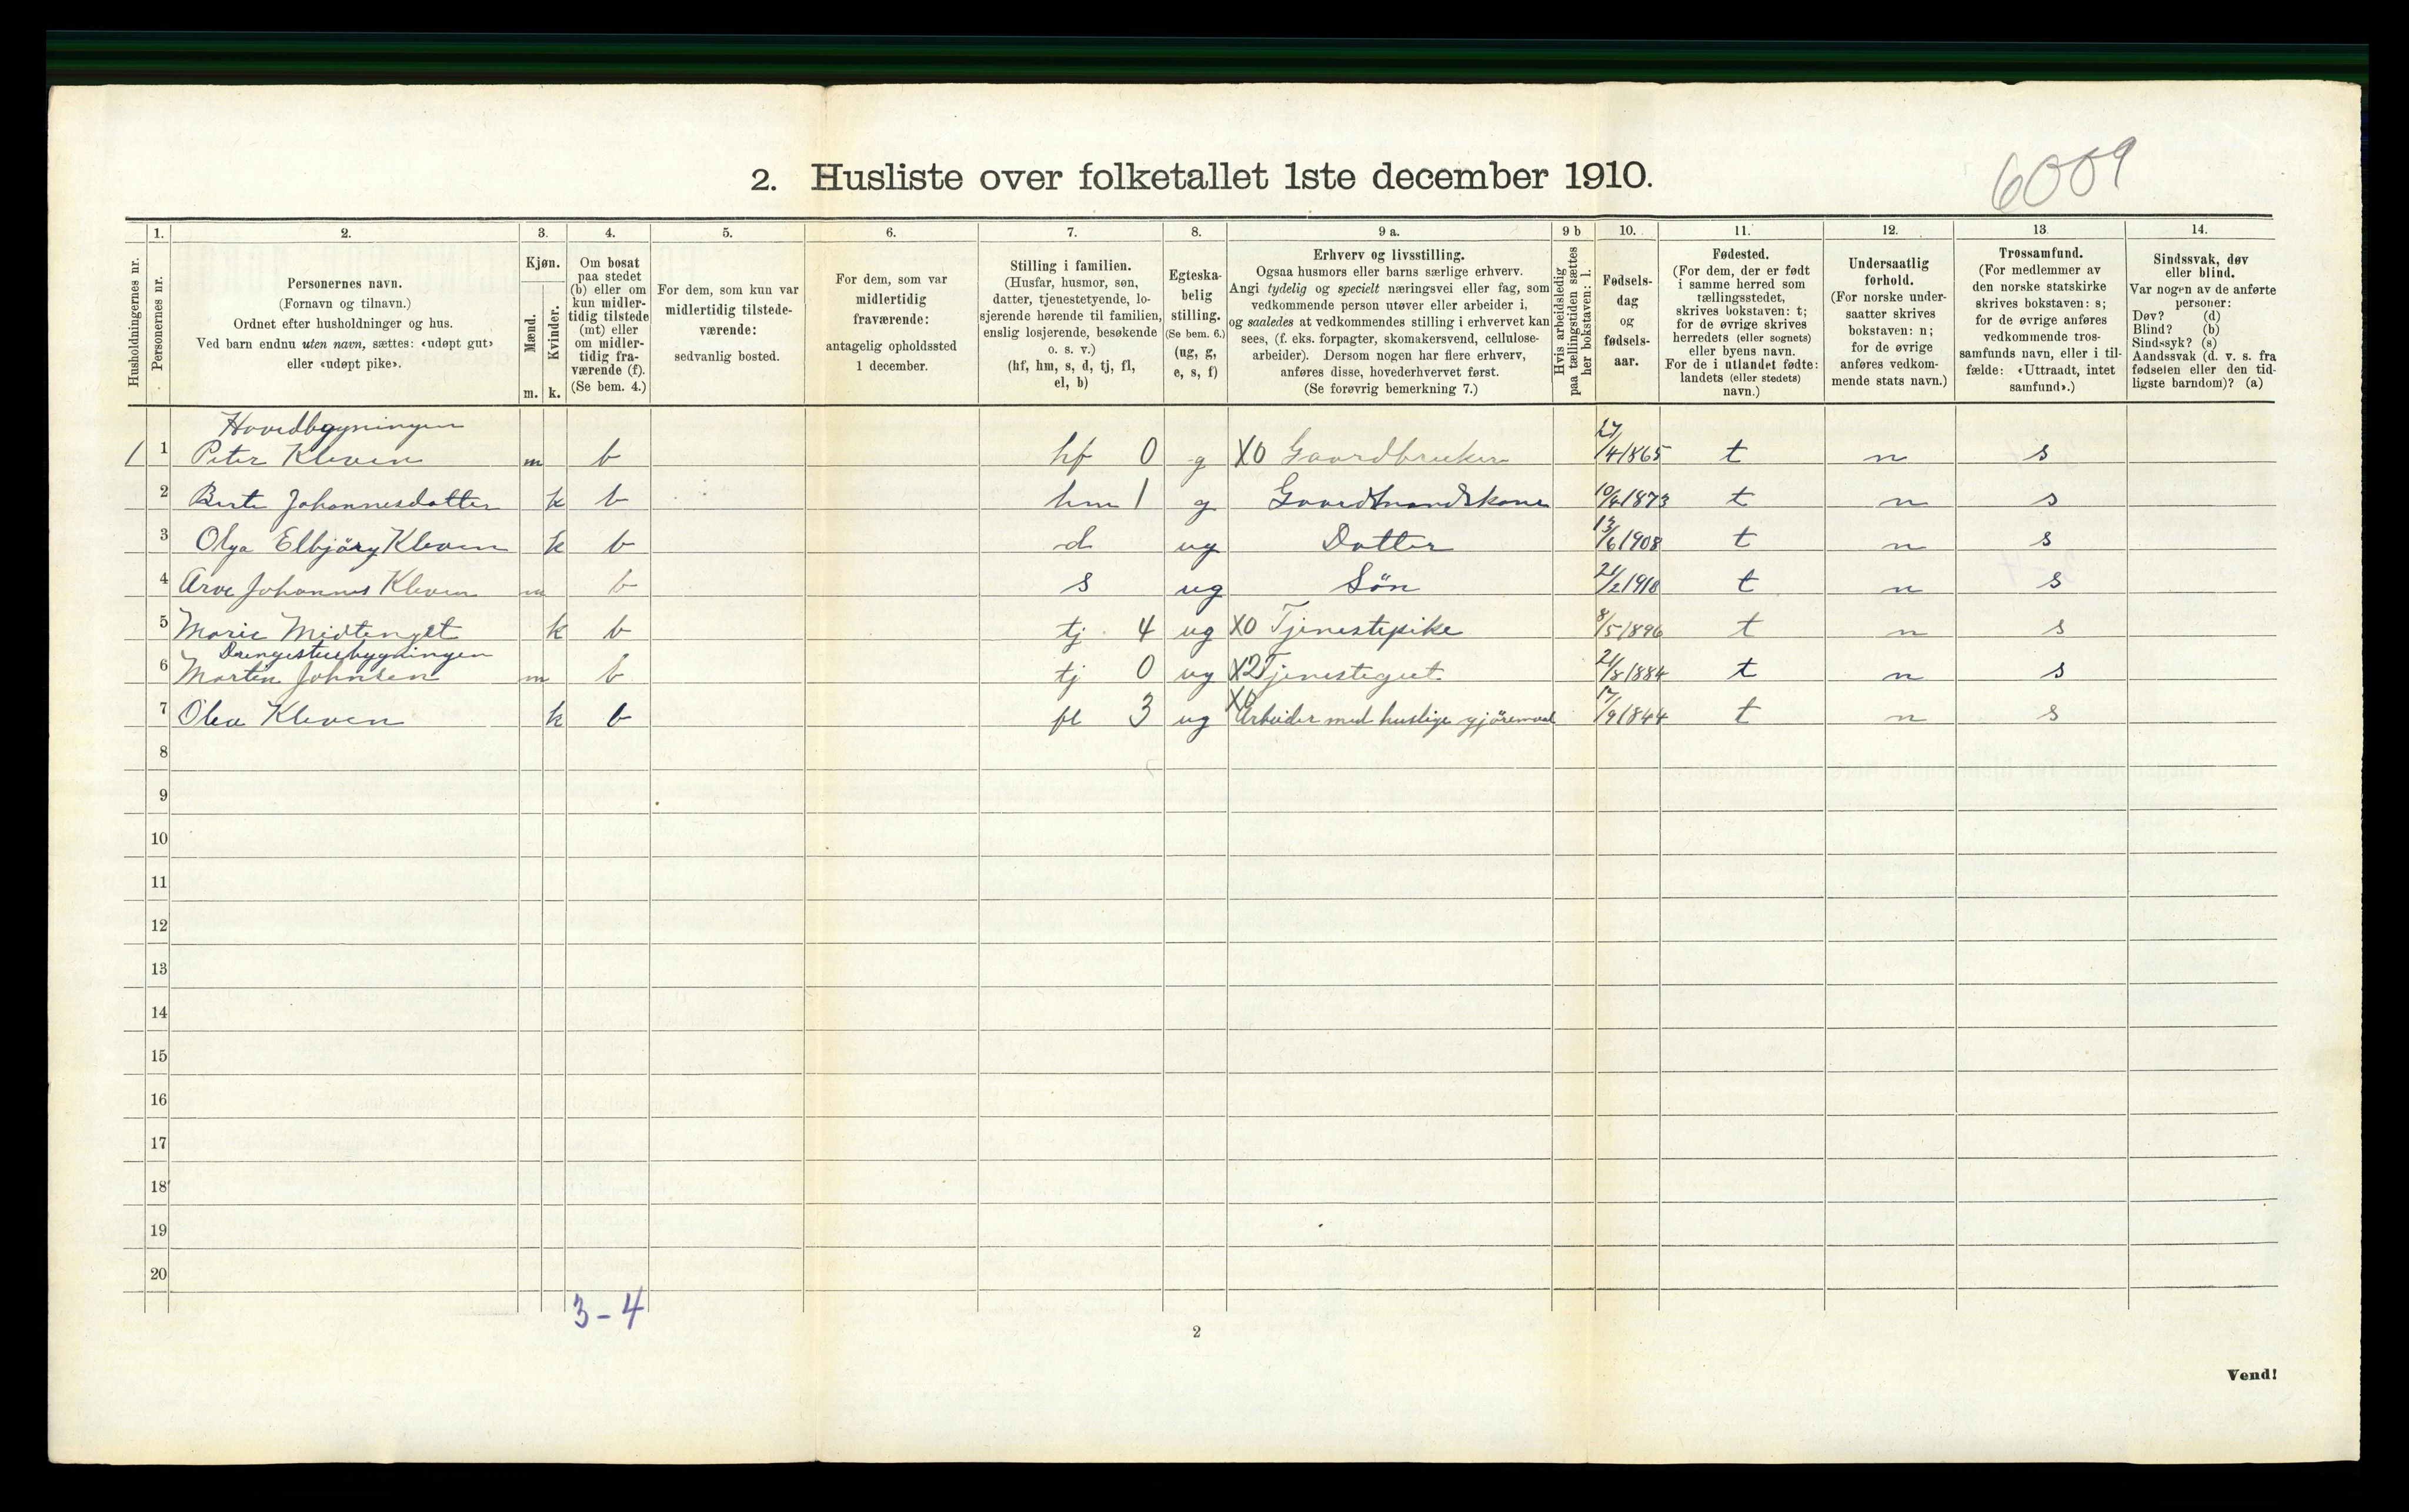 6009
2. Husliste over folketallet 1ste december 1910.
Husholdningernes nr.
1.
Personernes nr.
2.
Personernes navn.
(Fornavn og tilnavn.)
Ordnet efter husholdninger og hus.
Ved barn endnu uten navn, sættes: «udøpt gut»
eller «udøpt pike».
3.
Kjøn.
Mænd.
Kvinder.
m. k.
4.
Om bosat
paa stedet
(b) eller om
kun midler-
tidig tilstede
(mt) eller
om midler-
tidig fra-
værende (f).
(Se bem. 4.)
5.
For dem, som kun var
midlertidig tilstede-
værende:
sedvanlig bosted.
6.
For dem, som var
midlertidig
fraværende:
antagelig opholdssted
1 december.
7.
Stilling i familien.
(Husfar, husmor, søn,
datter, tjenestetyende, lo-
sjerende hørende til familien,
enslig losjerende, besøkende
o. s. v.)
(hf, hm, s, d, tj, fl,
el, b)
8.
Egteska-
belig
stilling.
(Se bem. 6.)
(ug, g,
e, s, f)
9 a.
Erhverv og livsstilling.
Ogsaa husmors eller barns særlige erhverv.
Angi tydelig og specielt næringsvei eller fag, som
vedkommende person utøver eller arbeider i,
og saaledes at vedkommendes stilling i erhvervet kan
sees, (f. eks. forpagter, skomakersvend, cellulose-
arbeider). Dersom nogen har flere erhverv,
anføres disse, hovederhvervet først.
(Se forøvrig bemerkning 7.)
9 b
Hvis arbeidsledig
paa tællingstiden sættes
her bokstaven: l.
10.
Fødsels-
dag
og
fødsels-
aar.
11.
Fødested.
(For dem, der er født
i samme herred som
tællingsstedet,
skrives bokstaven: t;
for de øvrige skrives
herredets (eller sognets)
eller byens navn.
For de i utlandet fødte:
landets (eller stedets)
navn.)
12.
Undersaatlig
forhold.
(For norske under-
saatter skrives
bokstaven: n;
for de øvrige
anføres vedkom-
mende stats navn.)
13.
Trossamfund.
(For medlemmer av
den norske statskirke
skrives bokstaven: s;
for de øvrige anføres
vedkommende tros-
samfunds navn, eller i til-
fælde: «Uttraadt, intet
samfund».)
14.
Sindssvak, døv
eller blind.
Var nogen av de anførte
personer:
Døv? (d)
Blind? (b)
Sindssyk? (s)
Aandssvak (d. v. s. fra
fødselen eller den tid-
ligste barndom)? (a)
Hovedbygningen
1 1 Peter Kleven m b hf 0 g X0 Gaardbruker 27/4 1865 t n s
2 Berte Johannesdatter k b hm 1 g Gaardmandskone 10/4 1873 t n s
3 Olga Elbjörg Kleven k b d ug Datter 13/6 1908 t n s
4 Arve Johannes Kleven m b s ug Søn 21/2 1910 t n s
5 Marie Midtenget k b tj 4 ug X0 Tjenestepike 8/5 1896 t n s
Drengestuebygningen
6 Martin Johnsen m b tj 0 ug X2 Tjenestegut 21/8 1884 t n s
7 Olea Kleven k b fl 3 ug X0 Arbeider med huslige gjöremaal 17/9 1844 t n s
8
9
10
11
12
13
14
15
16
17
18
19
20
3-4
2
Vend!